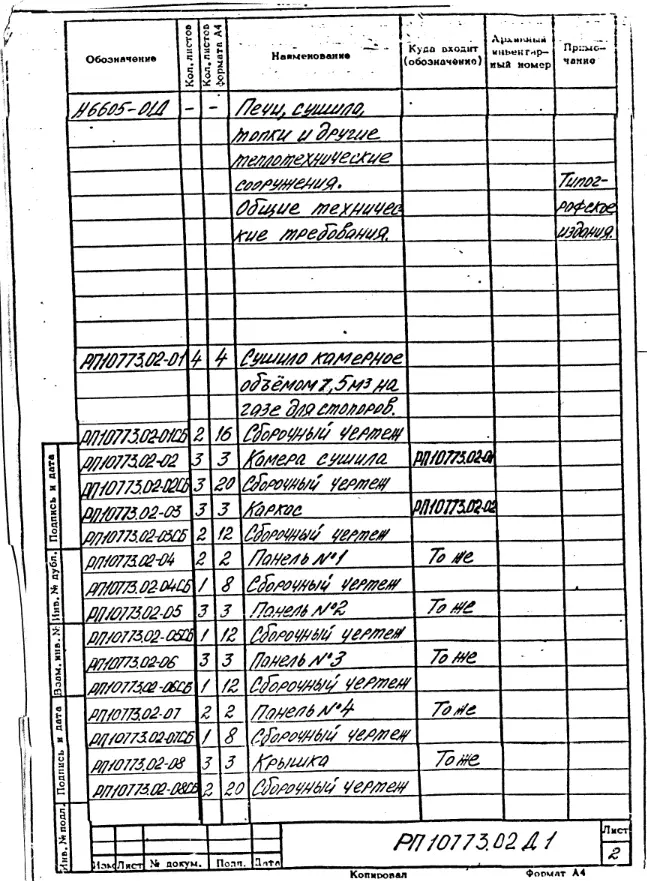 Обозначение Кол. листов Кол. листов формата А4 Наименование Куда входит (обозначение) Архивный инвентарный номер Примечание
Н6605-01Д - - Печи, сушила,
топки и другие
теплотехнические
сооружения. Типог-
Общие техничес- рафское
кие требования. издания.
РП10773.02-01 4 4 Сушило камерное
объёмом 7,5м3 на
газе для стопоров.
РП10773.02-01СБ 2 16 Сборочный чертеж
РП10773.02-02 3 3 Камера сушила РП10773.02-01
РП10773.02-02СБ 3 20 Сборочный чертеж
РП10773.02-03 3 3 Каркас РП10773.02-02
РП10773.02-03СБ 2 12 Сборочный чертеж
РП10773.02-04 2 2 Панель №1 То же
РП10773.02-04СБ 1 8 Сборочный чертеж
РП10773.02-05 3 3 Панель №2 То же
РП10773.02-05СБ 1 12 Сборочный чертеж
РП10773.02-06 3 3 Панель №3 То же
РП10773.02-06СБ 1 12 Сборочный чертеж
РП10773.02-07 2 2 Панель №4 То же
РП10773.02-07СБ 1 8 Сборочный чертеж
РП10773.02-08 3 3 Крышка То же
РП10773.02-08СБ 2 20 Сборочный чертеж
Подпись и дата
Инв. № дубл.
Взам. инв. №
Подпись и дата
Инв. № подл.
РП10773.02 Д1
Лист
2
Изм Лист № докум. Подп. Дата
Копировал Формат А4